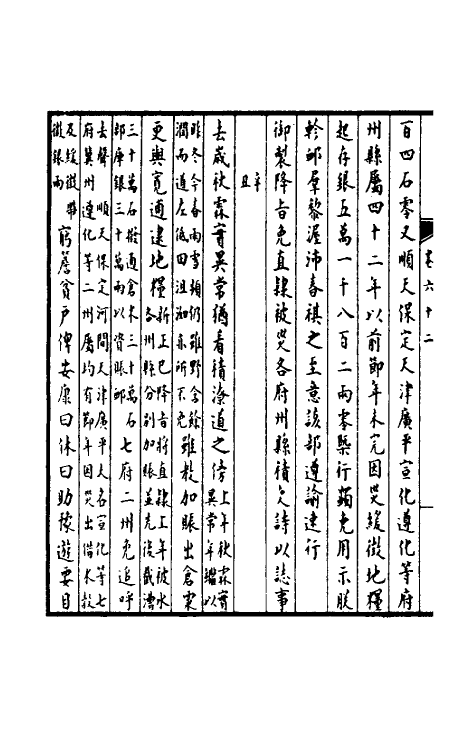 卷六十二
百四石零又順天保定天津廣平宣化遵化等府
州縣屬四十二年以前節年未完因災緩徵地糧
起存銀五萬一千八百二兩零槩行蠲免用示朕
軫邺羣黎渥沛春祺之至意該部遵諭速行
御製降旨免直隸被災各府州縣積欠詩以誌事
辛丑
去歲秋霖實異常猶看積潦道之傍上年秋霖實異常年以
昨冬今春雨雪頻仍雖野含餘潤而道左低田沮洳亦所不免雖教加賑出倉粟
更與寬逋逮地糧新正已降旨將直隸上年被水各州縣分別加賑並先後截漕
三十萬石撥通倉米三十萬石部庫銀三十萬兩以資賑邺七府二州免追呼
去聲順天保定河間天津廣平大名宣化等七府冀州遵化等二州屬均有節年因災出借米穀
及緩徵帶徵銀兩窮簷貧戶俾安康曰休曰助豫遊要目